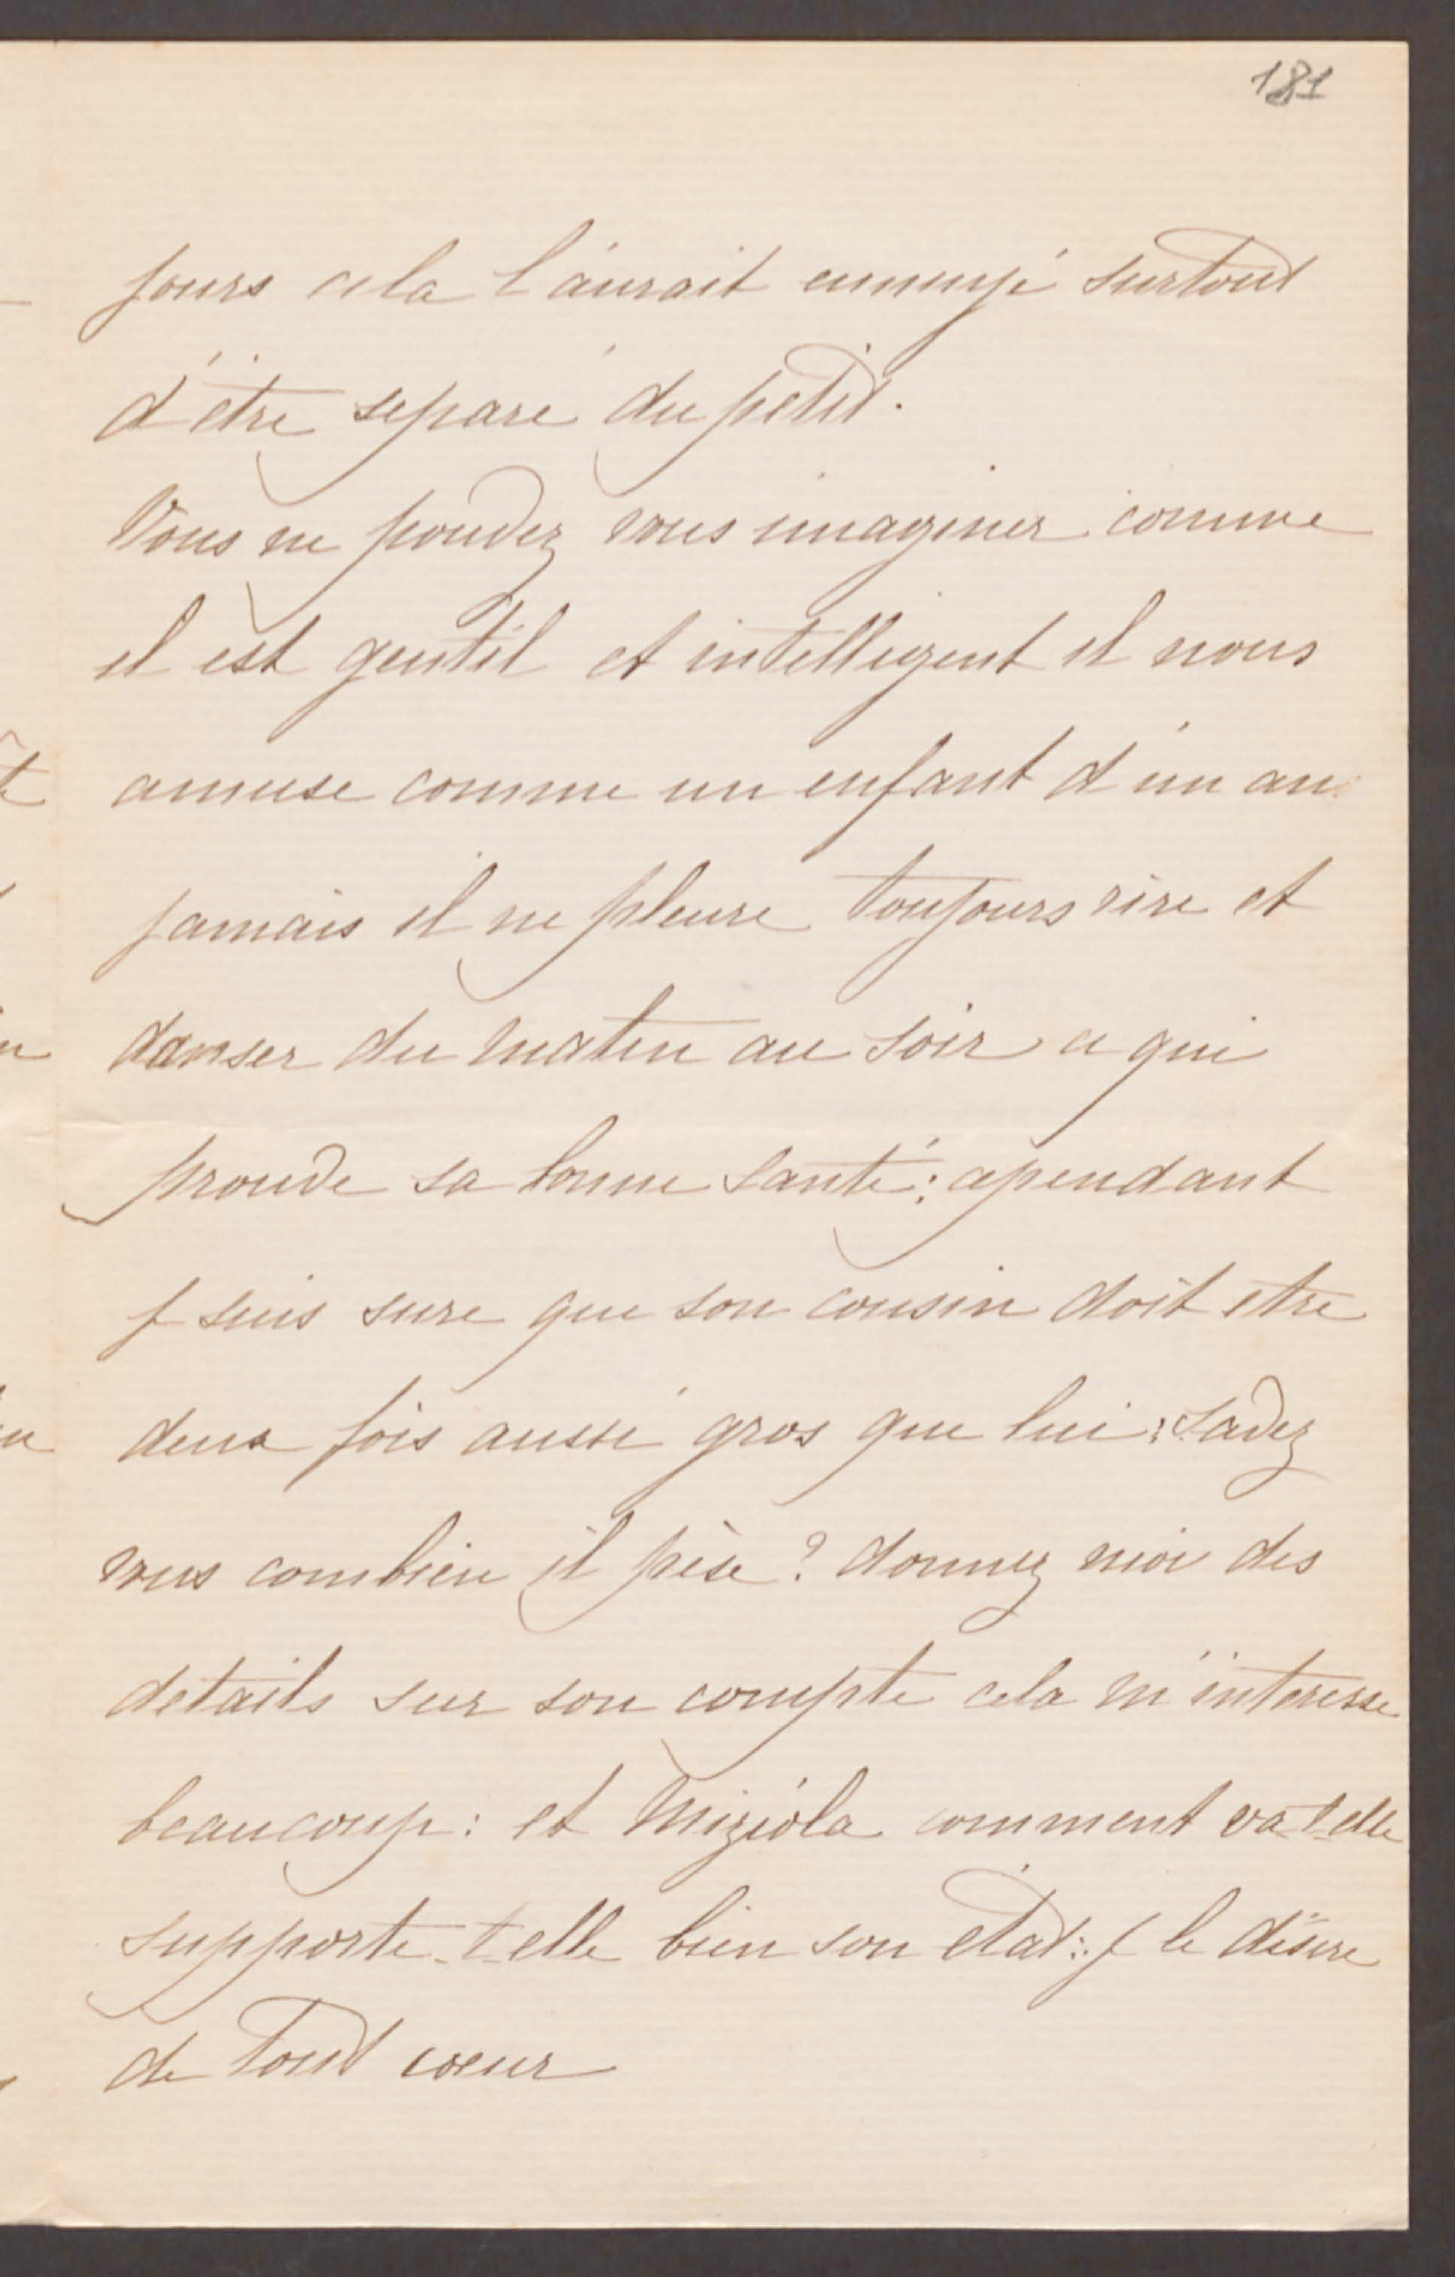 181
jours cela l'aurait ennuyé surtout
d'être separé du petit.
Vous ne pouvez vous imaginer comme
il est gentil et intelligent il nous
amuse comme un enfant d'un an.
jamais il ne pleure toujours rire et
danser du matin au soir ce qui
prouve sa bonne santé: cependant
je suis sure que son cousin doit etre
deux fois aussi gros que lui: savez
vous combien il pèse? donnez moi des
details sur son compte cela m'interesse
beaucoup: et Miziola comment va-t-elle
supporte-t-elle bien son état: je le désire
de tout coeur